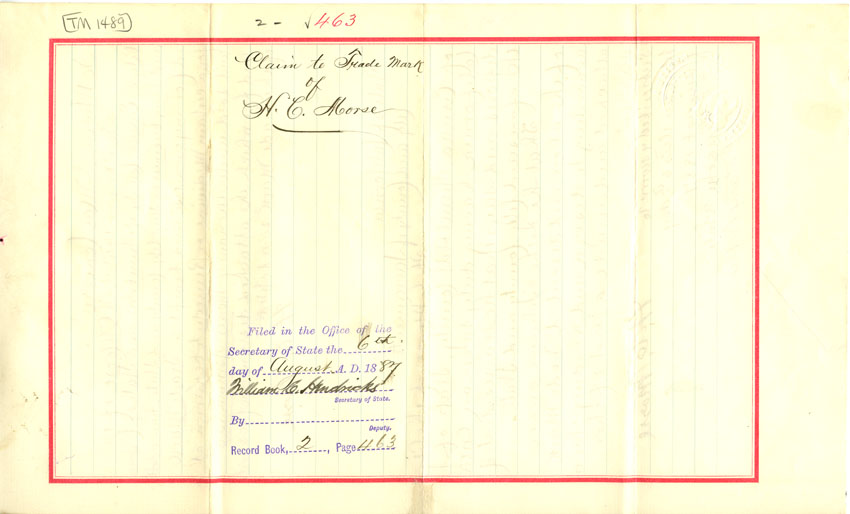 TM 1489
2 - √463
Claim to Trade Mark
of
H. E. Morse
Filed in the Office of the
Secretary of State the 6th.
day of August A. D. 1887
William C. Hendricks
Secretary of State.
By
Deputy.
Record Book, 2, Page 463